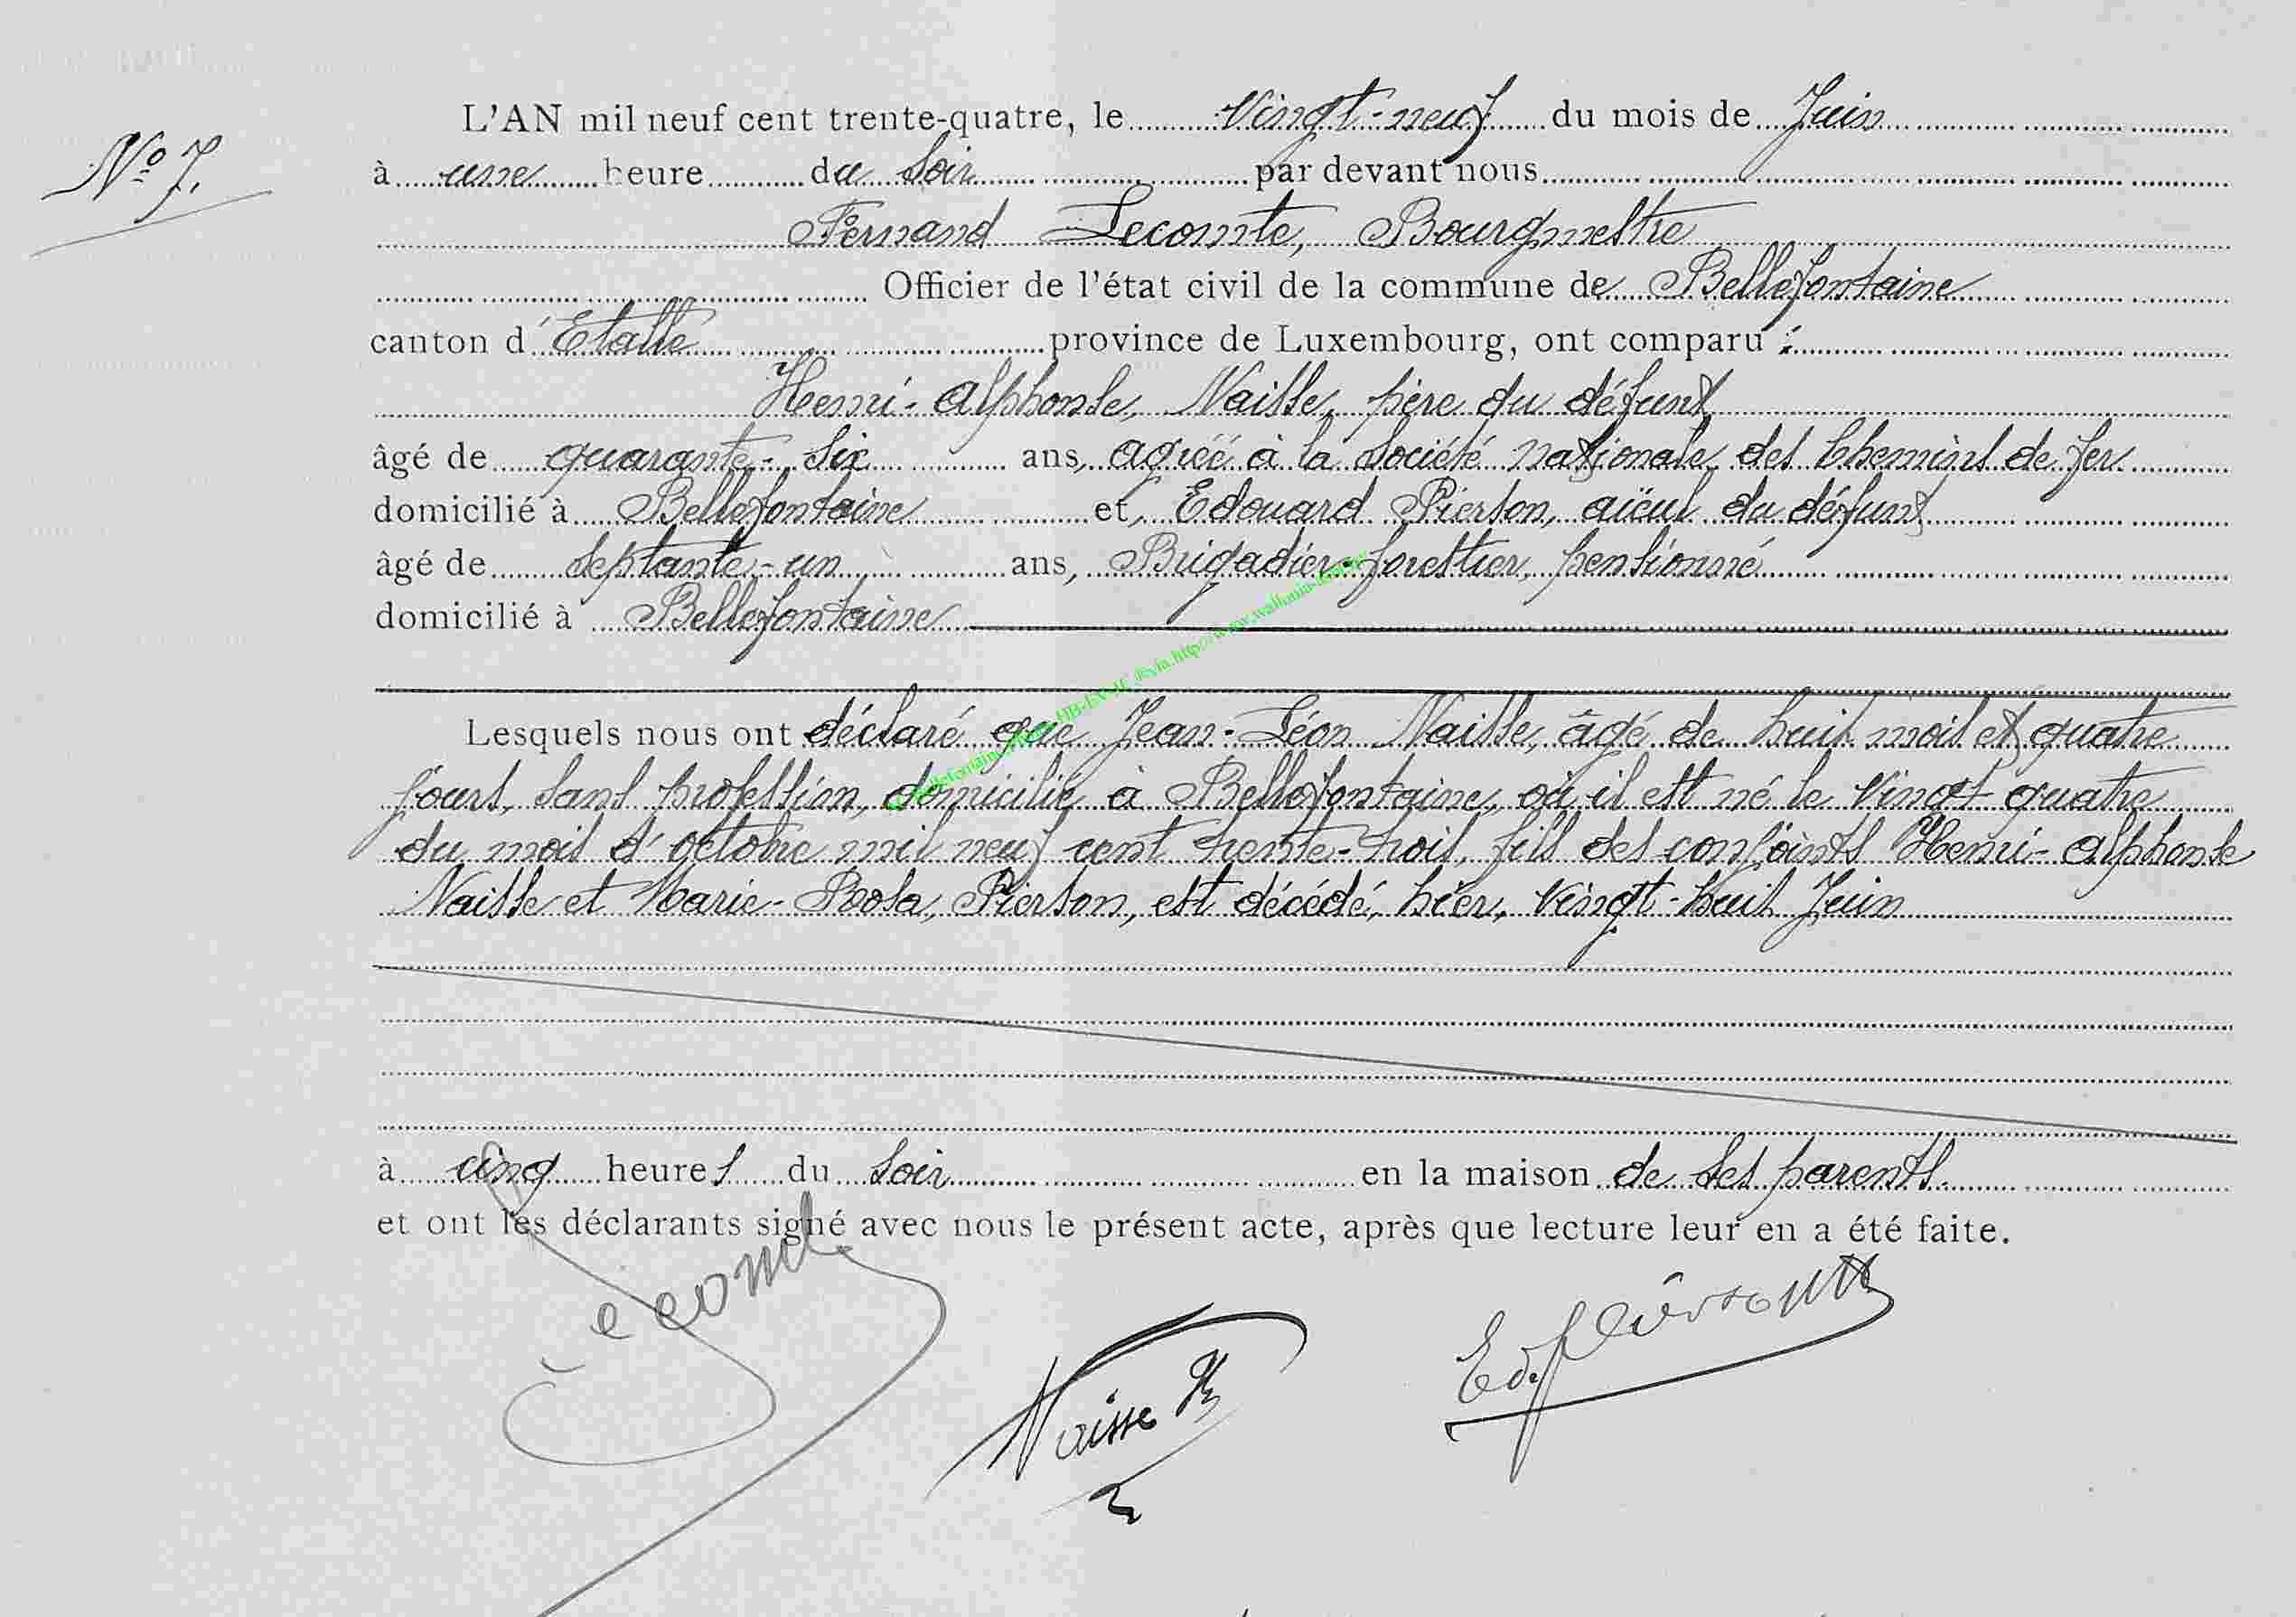 L'AN mil neuf cent trente-quatre, le vingt-neuf du mois de Juin
N° 7.
à une heure du soir par devant nous
Fernand Lecomte, Bourgmestre
Officier de l'état civil de la commune de Bellefontaine
canton d'Etalle province de Luxembourg, ont comparu :
Henri-Alphonse, Naisse, père du défunt
âgé de quarante-six ans, agréé à la Société nationale des Chemins de fer
domicilié à Bellefontaine et Edouard Pierson, aïeul du défunt
âgé de septante-un ans, Brigadier-forestier, pensionné
domicilié à Bellefontaine
Lesquels nous ont déclaré que Jean-Léon Naisse, âgé de huit mois et quatre
jours, sans profession, domicilié à Bellefontaine, où il est né le vingt quatre
du mois d'octobre mil neuf cent trente-trois, fils des conjoints Henri-Alphonse
Naisse et Marie-Rosa, Pierson, est décédé, hier, vingt-huit Juin
à cinq heures du soir en la maison de ses parents.
et ont les déclarants signé avec nous le présent acte, après que lecture leur en a été faite.
Lecomte
Naisse H
Ed. Pierson